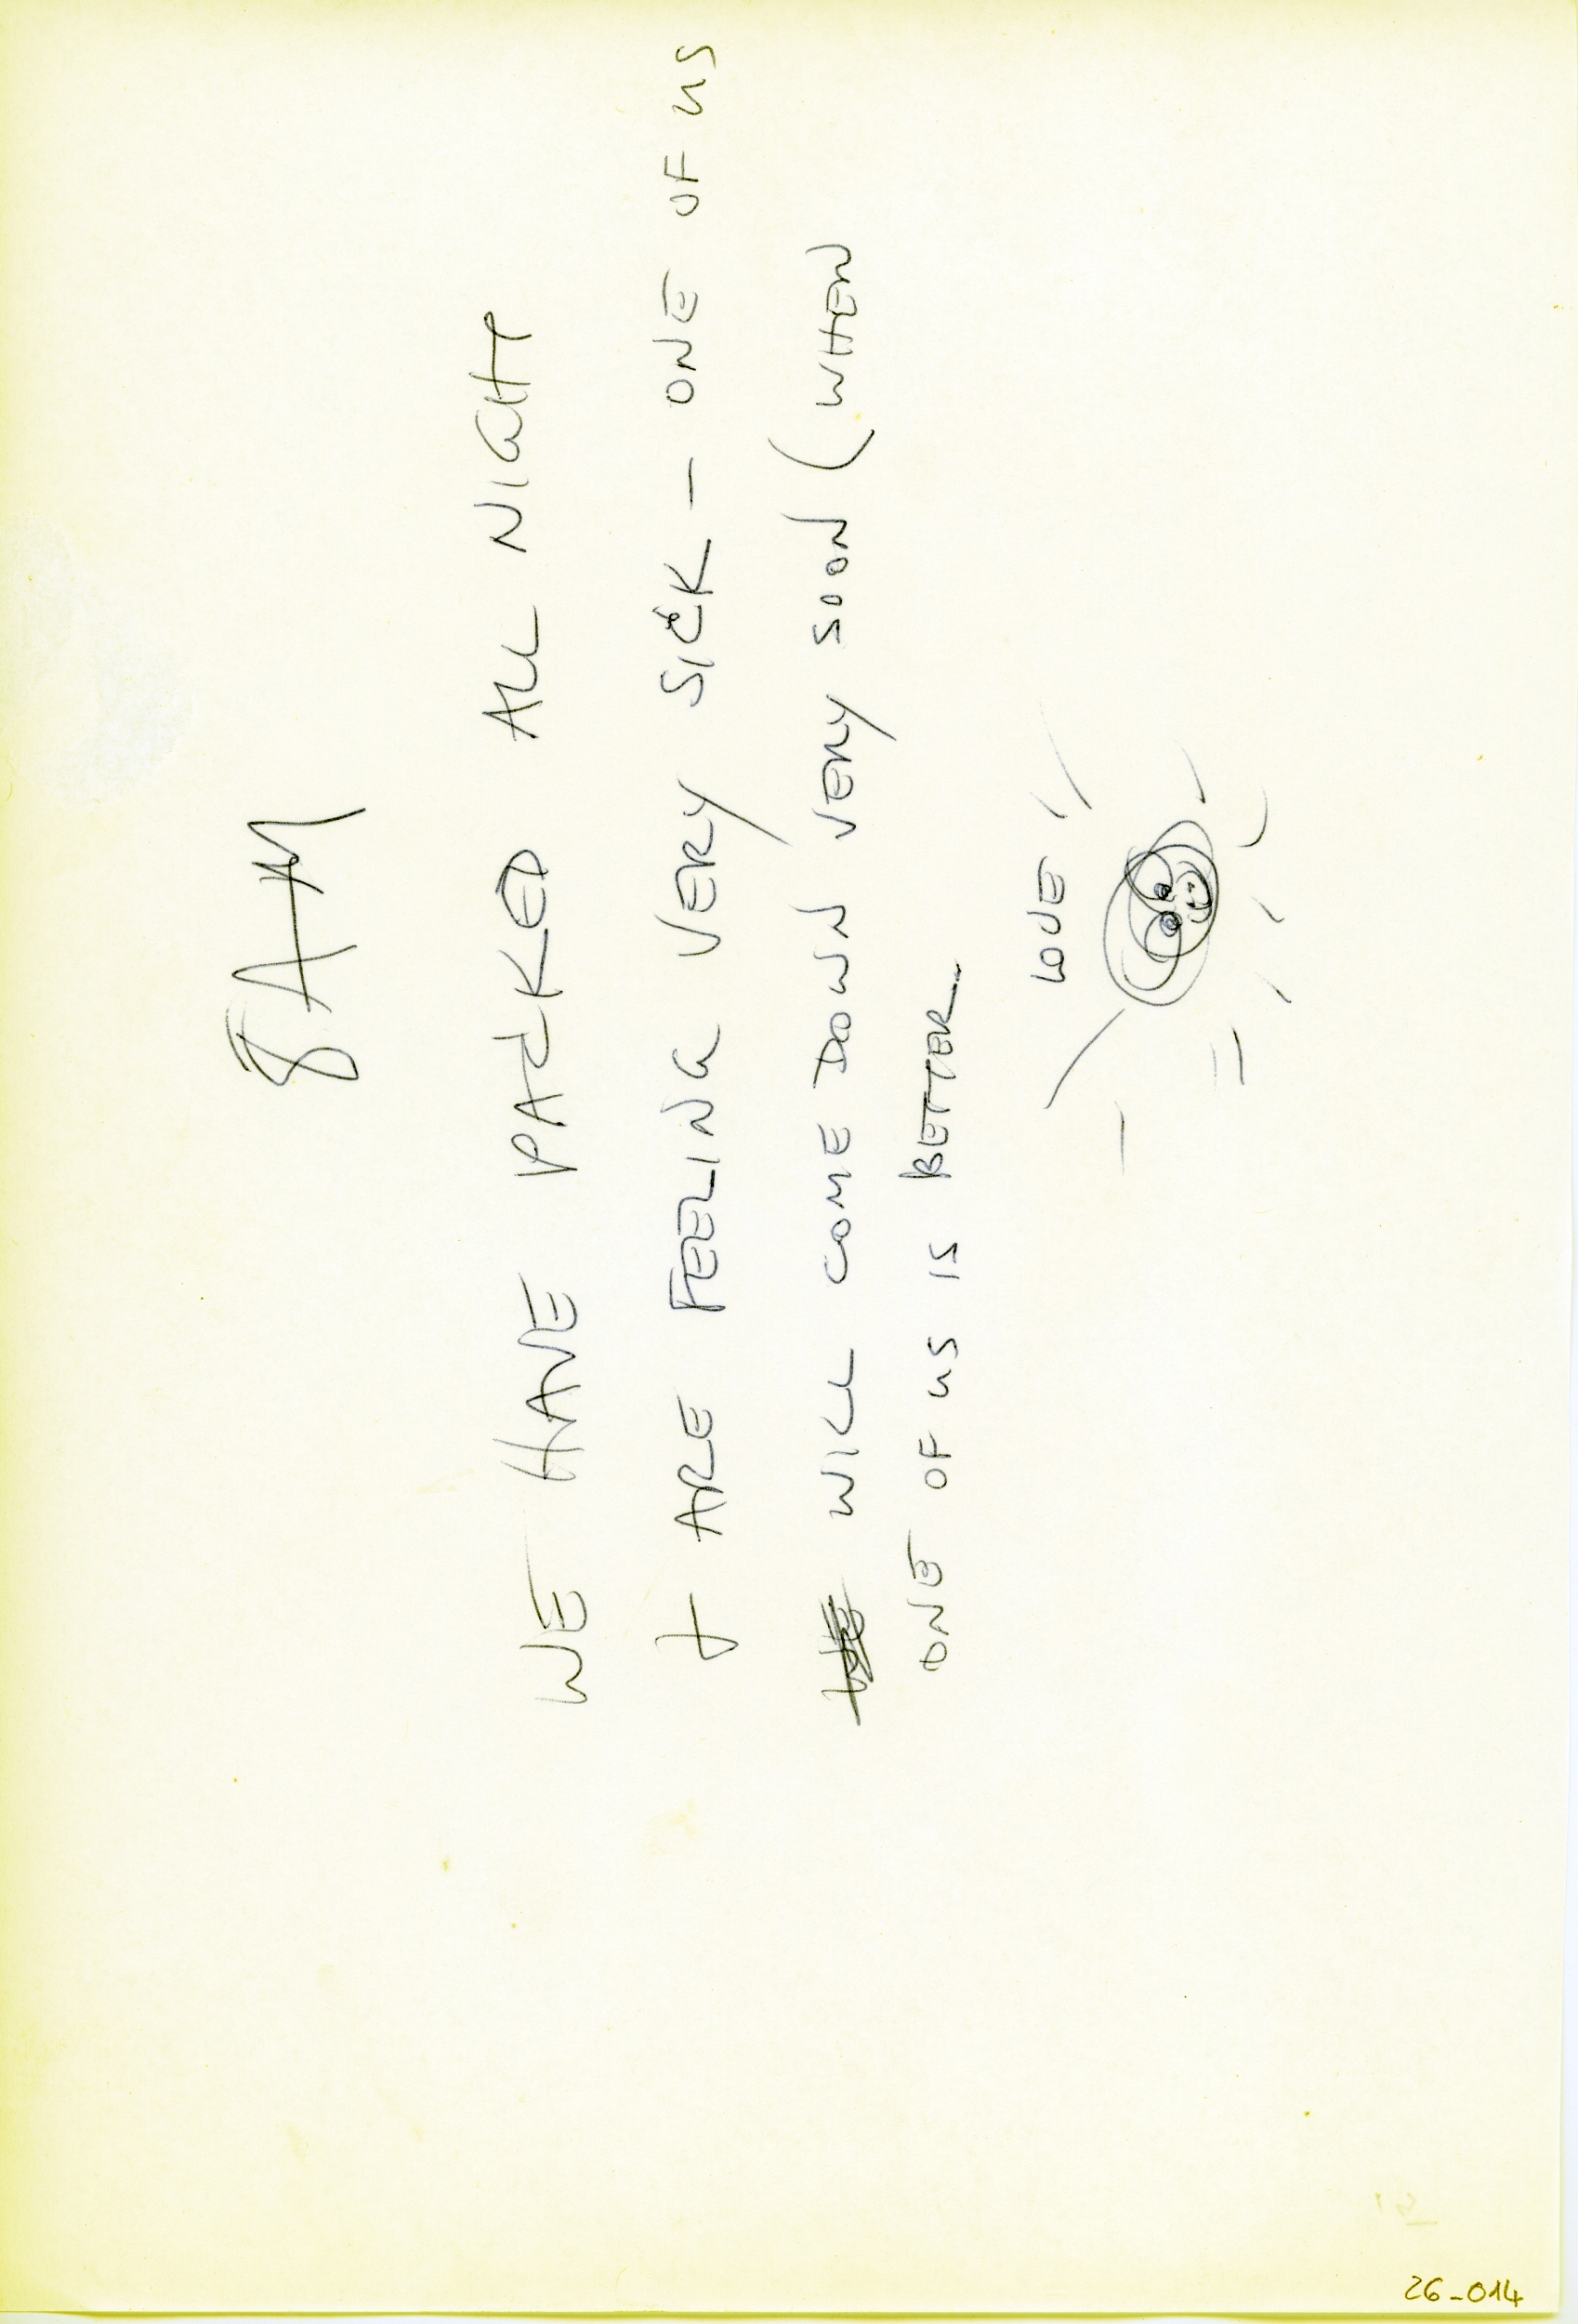 8 AM
WE HAVE PACKED ALL NIGHT
+ ARE FEELING VERY SICK - ONE OF US
WILL COME DOWN VERY SOON (WHEN
ONE OF US IS BETTER
LOVE
26-014